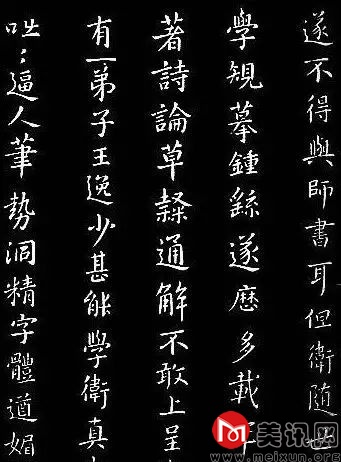 遂不得與師書耳但衛隨世
學規摹鍾繇遂歷多載
著詩論草隸通解不敢上呈
有一弟子王逸少甚能學衛真
咄〻逼人筆勢洞精字體遒媚
美讯网
www.meixun.org